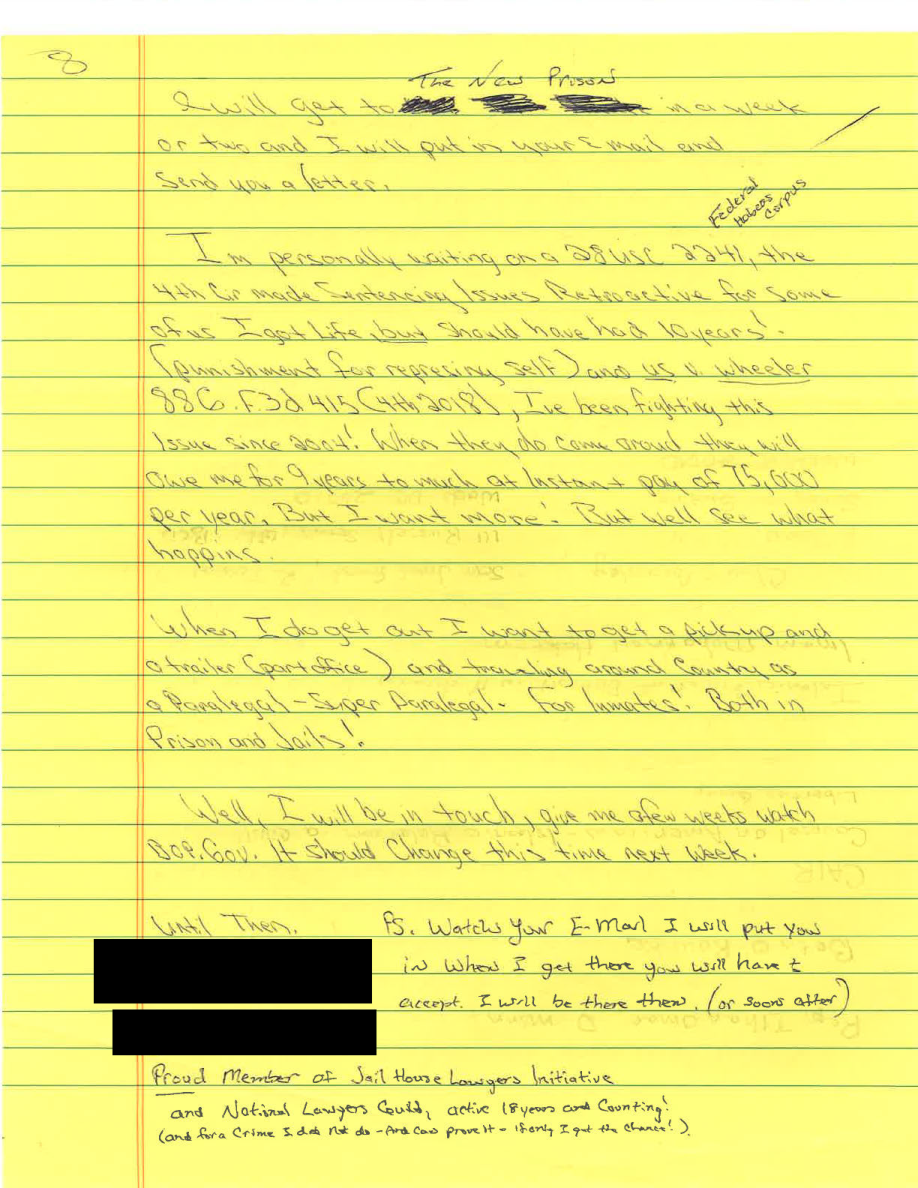 8
The New Prison
I will get to in a week
or two and I will put in your E mail and
Send you a letter.
Federal
Habeas
Corpus
I'm personally waiting on a 28 USC 2241, the
4th Cir made Sentencing Issues Retroactive for some
of us I got Life, but should have had 10 years!
(punishment for represing self) and US v. Wheeler
886 F.3d 415 (4th 2018), Ive been fighting this
Issue since 2004! When they do come aroud they will
Owe me for 9 years to much at Instant pay of 75,000
per year. But I want more! But well see what
happins.
When I do get out I want to get a pickup and
a trailer (port office) and traveling around Country as
a Paralegal - Super Paralegal - For Inmates! Both in
Prison and Jails!
Well, I will be in touch, give me a few weeks watch
BOP.Gov. It should Change this time next week.
Until Then.
PS. Watch Your E-Mail I will put you
in When I get there you will have t
accept. I will be there then. (or soon after)
Proud Member of Jail House Lawyers Initiative
and National Lawyers Guild, active 18 years and Counting!
(and for a Crime I did Not do - And Can prove It - If only I get the Chance!).